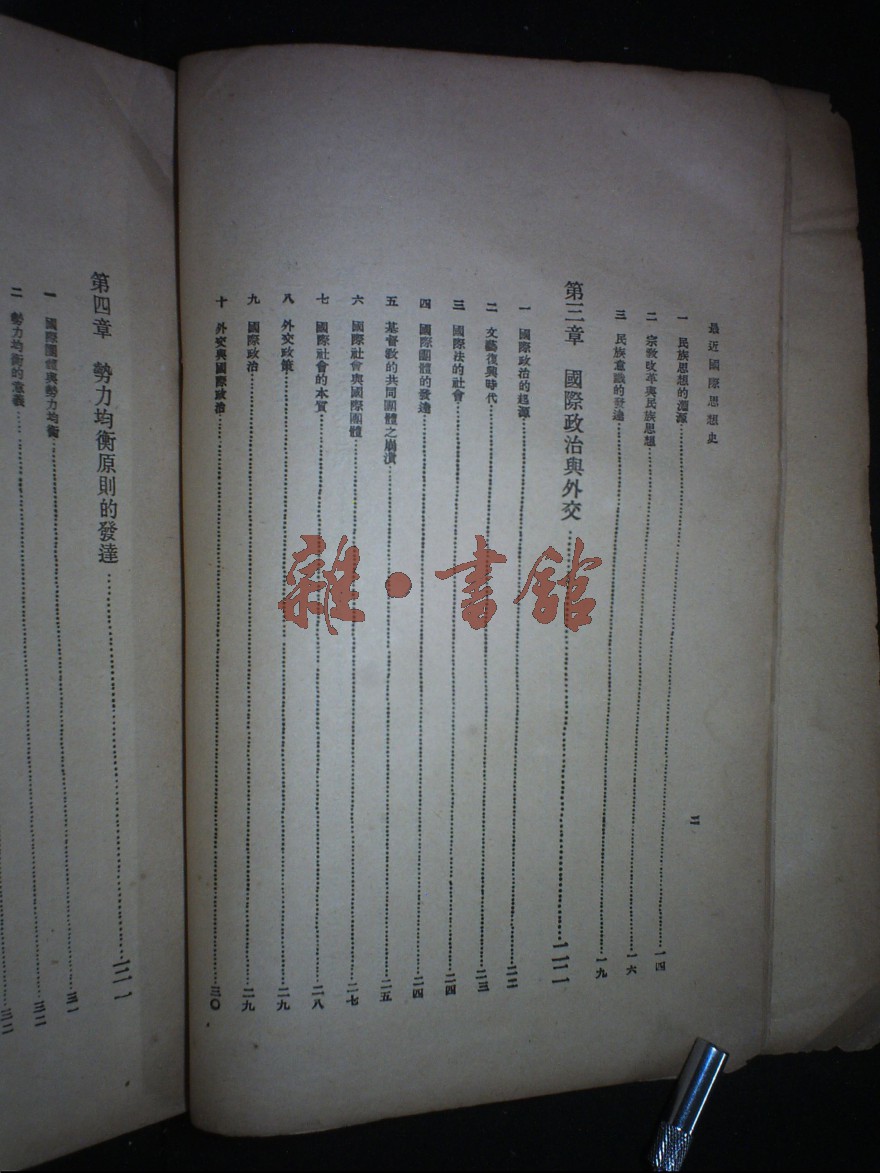 最近國際思想史
二
一 民族思想的淵源……一四
二 宗教改革與民族思想……一六
三 民族意識的發達……一九
第三章 國際政治與外交……二二
一 國際政治的起源……二二
二 文藝復興時代……二三
三 國際法的社會……二四
四 國際團體的發達……二四
五 基督教的共同團體之崩潰……二五
六 國際社會與國際團體……二七
七 國際社會的本質……二八
八 外交政策……二九
九 國際政治……二九
十 外交與國際政治……三〇
第四章 勢力均衡原則的發達……三一
一 國際團體與勢力均衡……三一
二 勢力均衡的意義……三二
三二
雜·書館